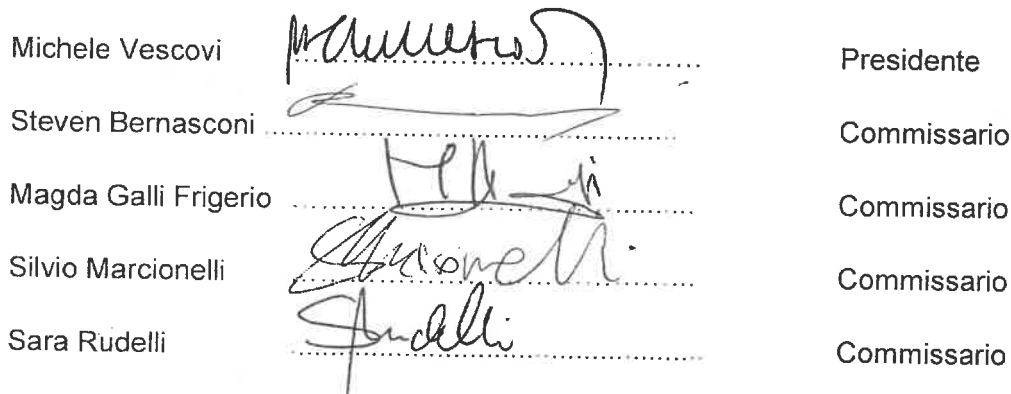 Michele Vescovi Presidente
Steven Bernasconi Commissario
Magda Galli Frigerio Commissario
Silvio Marcionelli Commissario
Sara Rudelli Commissario